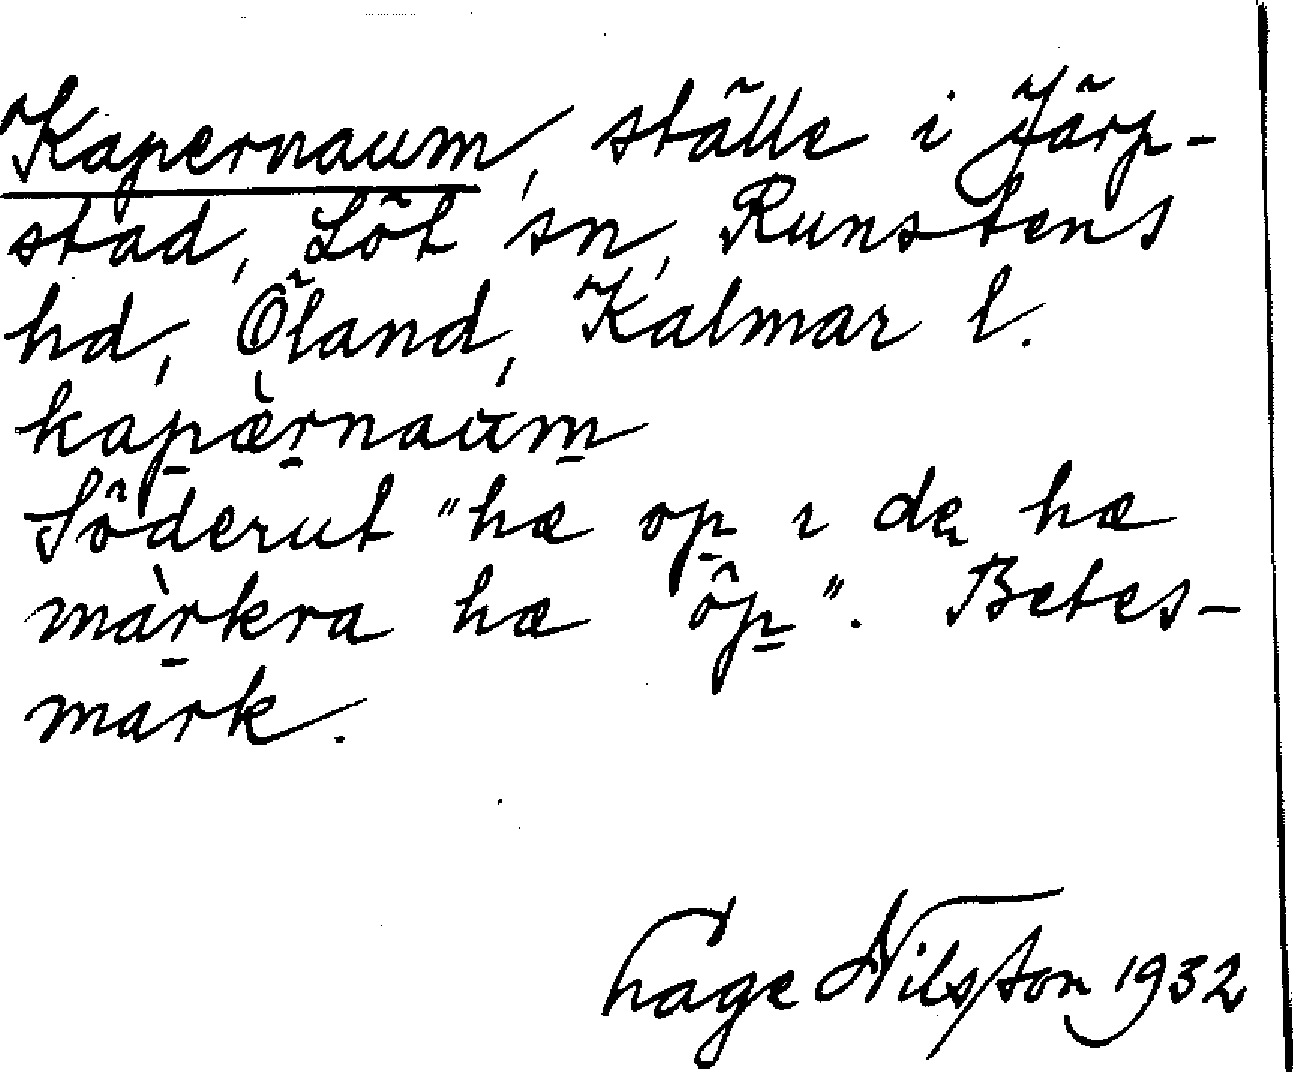 Kapernaum, ställe i Järp-
stad, Löt sn, Runstens
hd, Öland, Kalmar l.
kapæ̀rnaum
Söderut "hæ op ı de hæ
màrkra hæ öp". Betes-
mark.
Hage Nilsson 1932